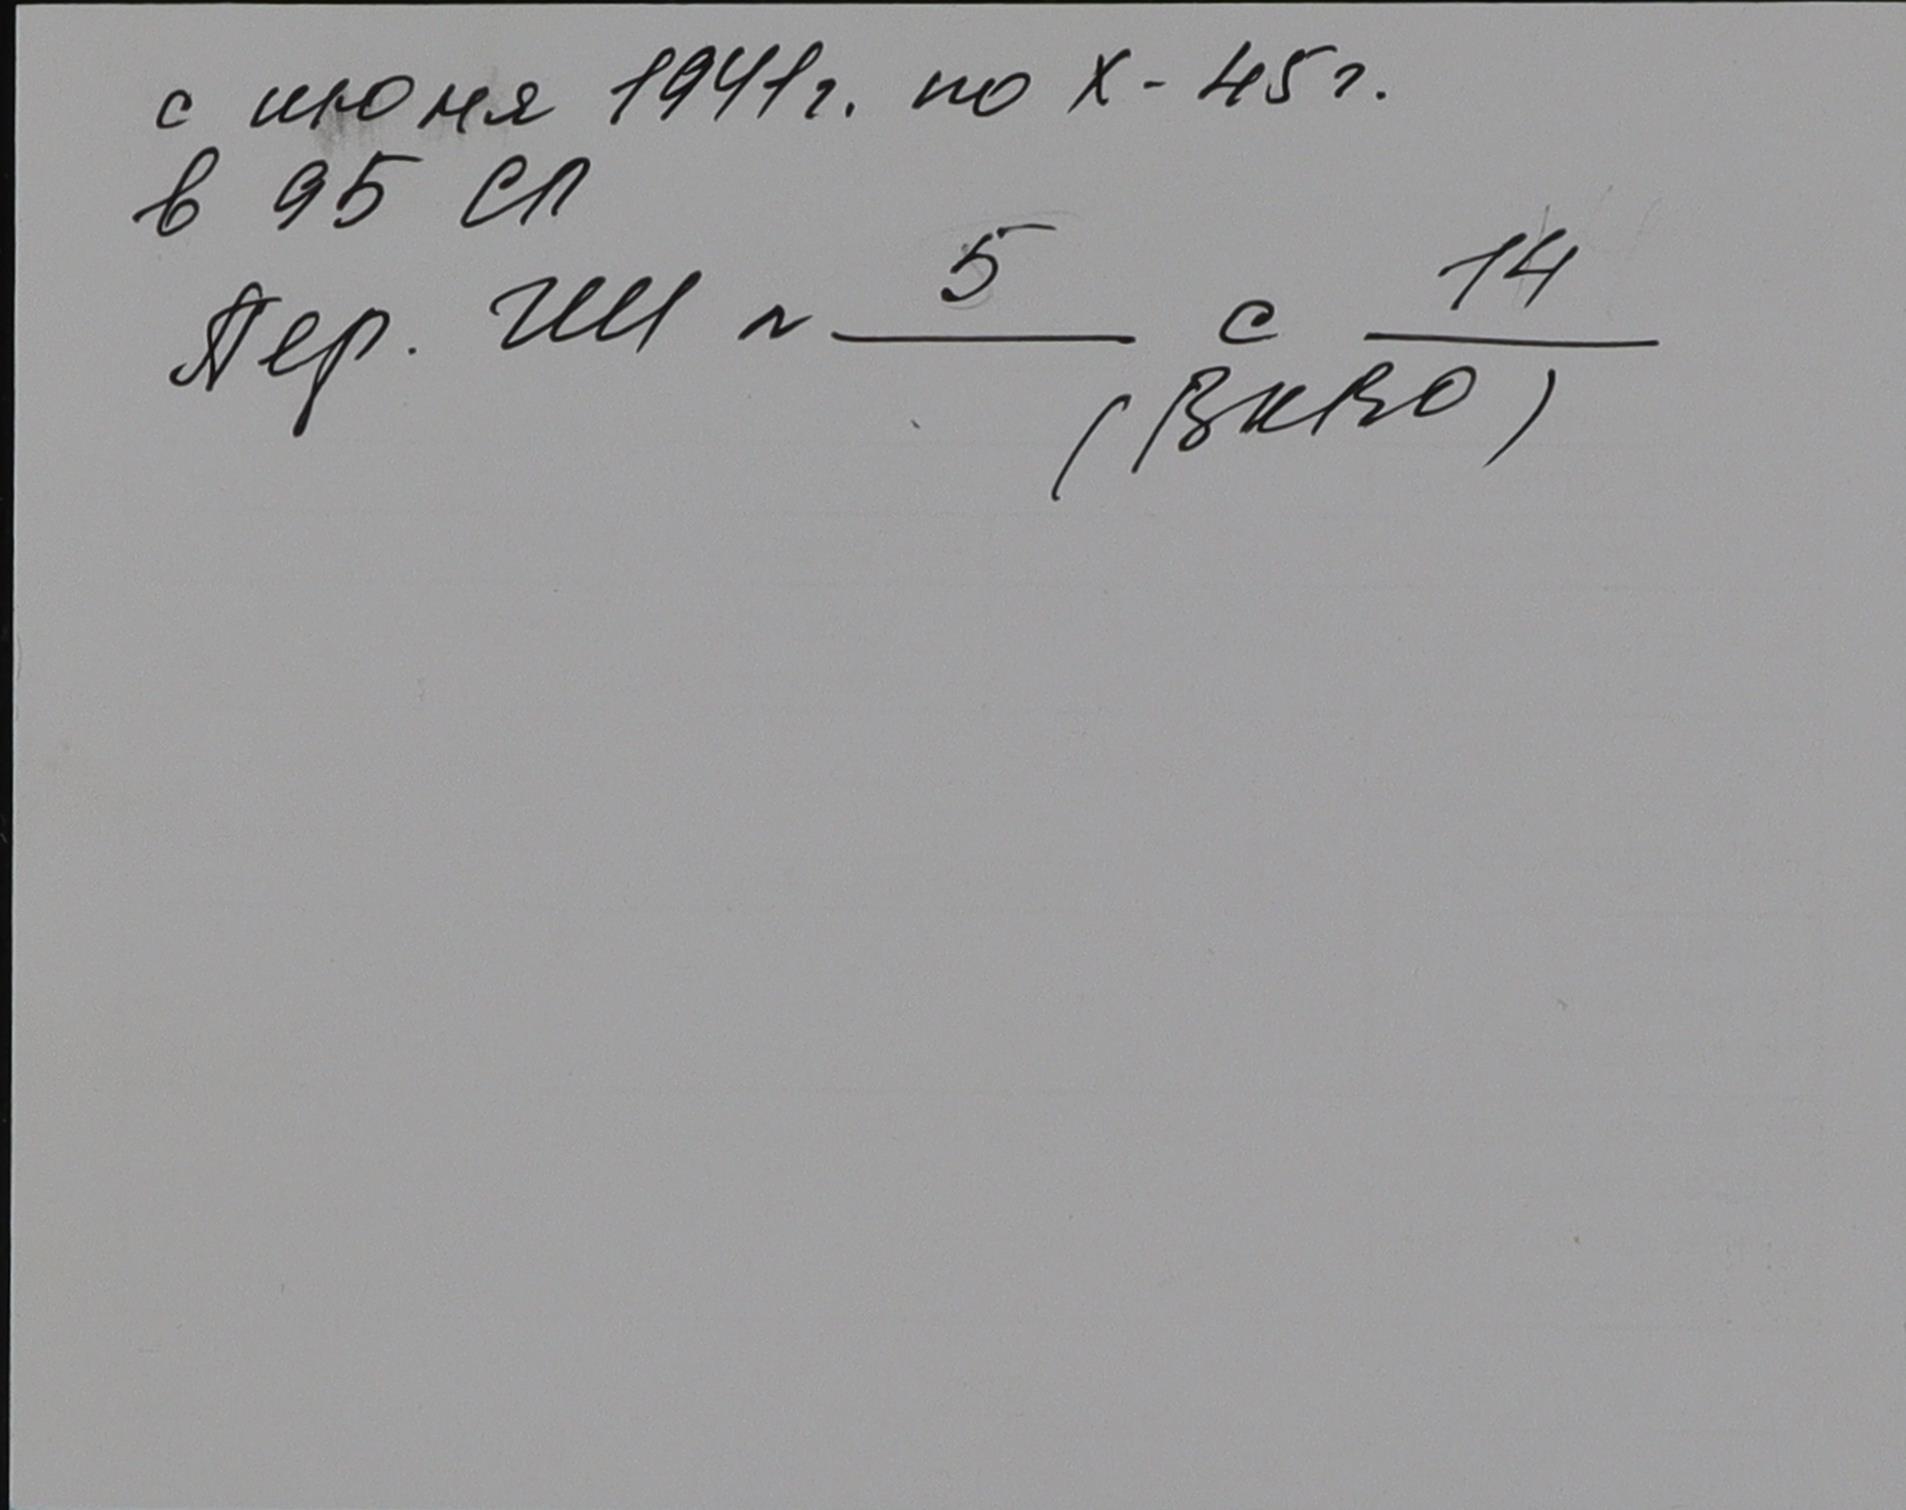 с июня 1941г. по X-45г.
в 95 СП
Пер. ГШ № 5 с 14
(ВКВО)